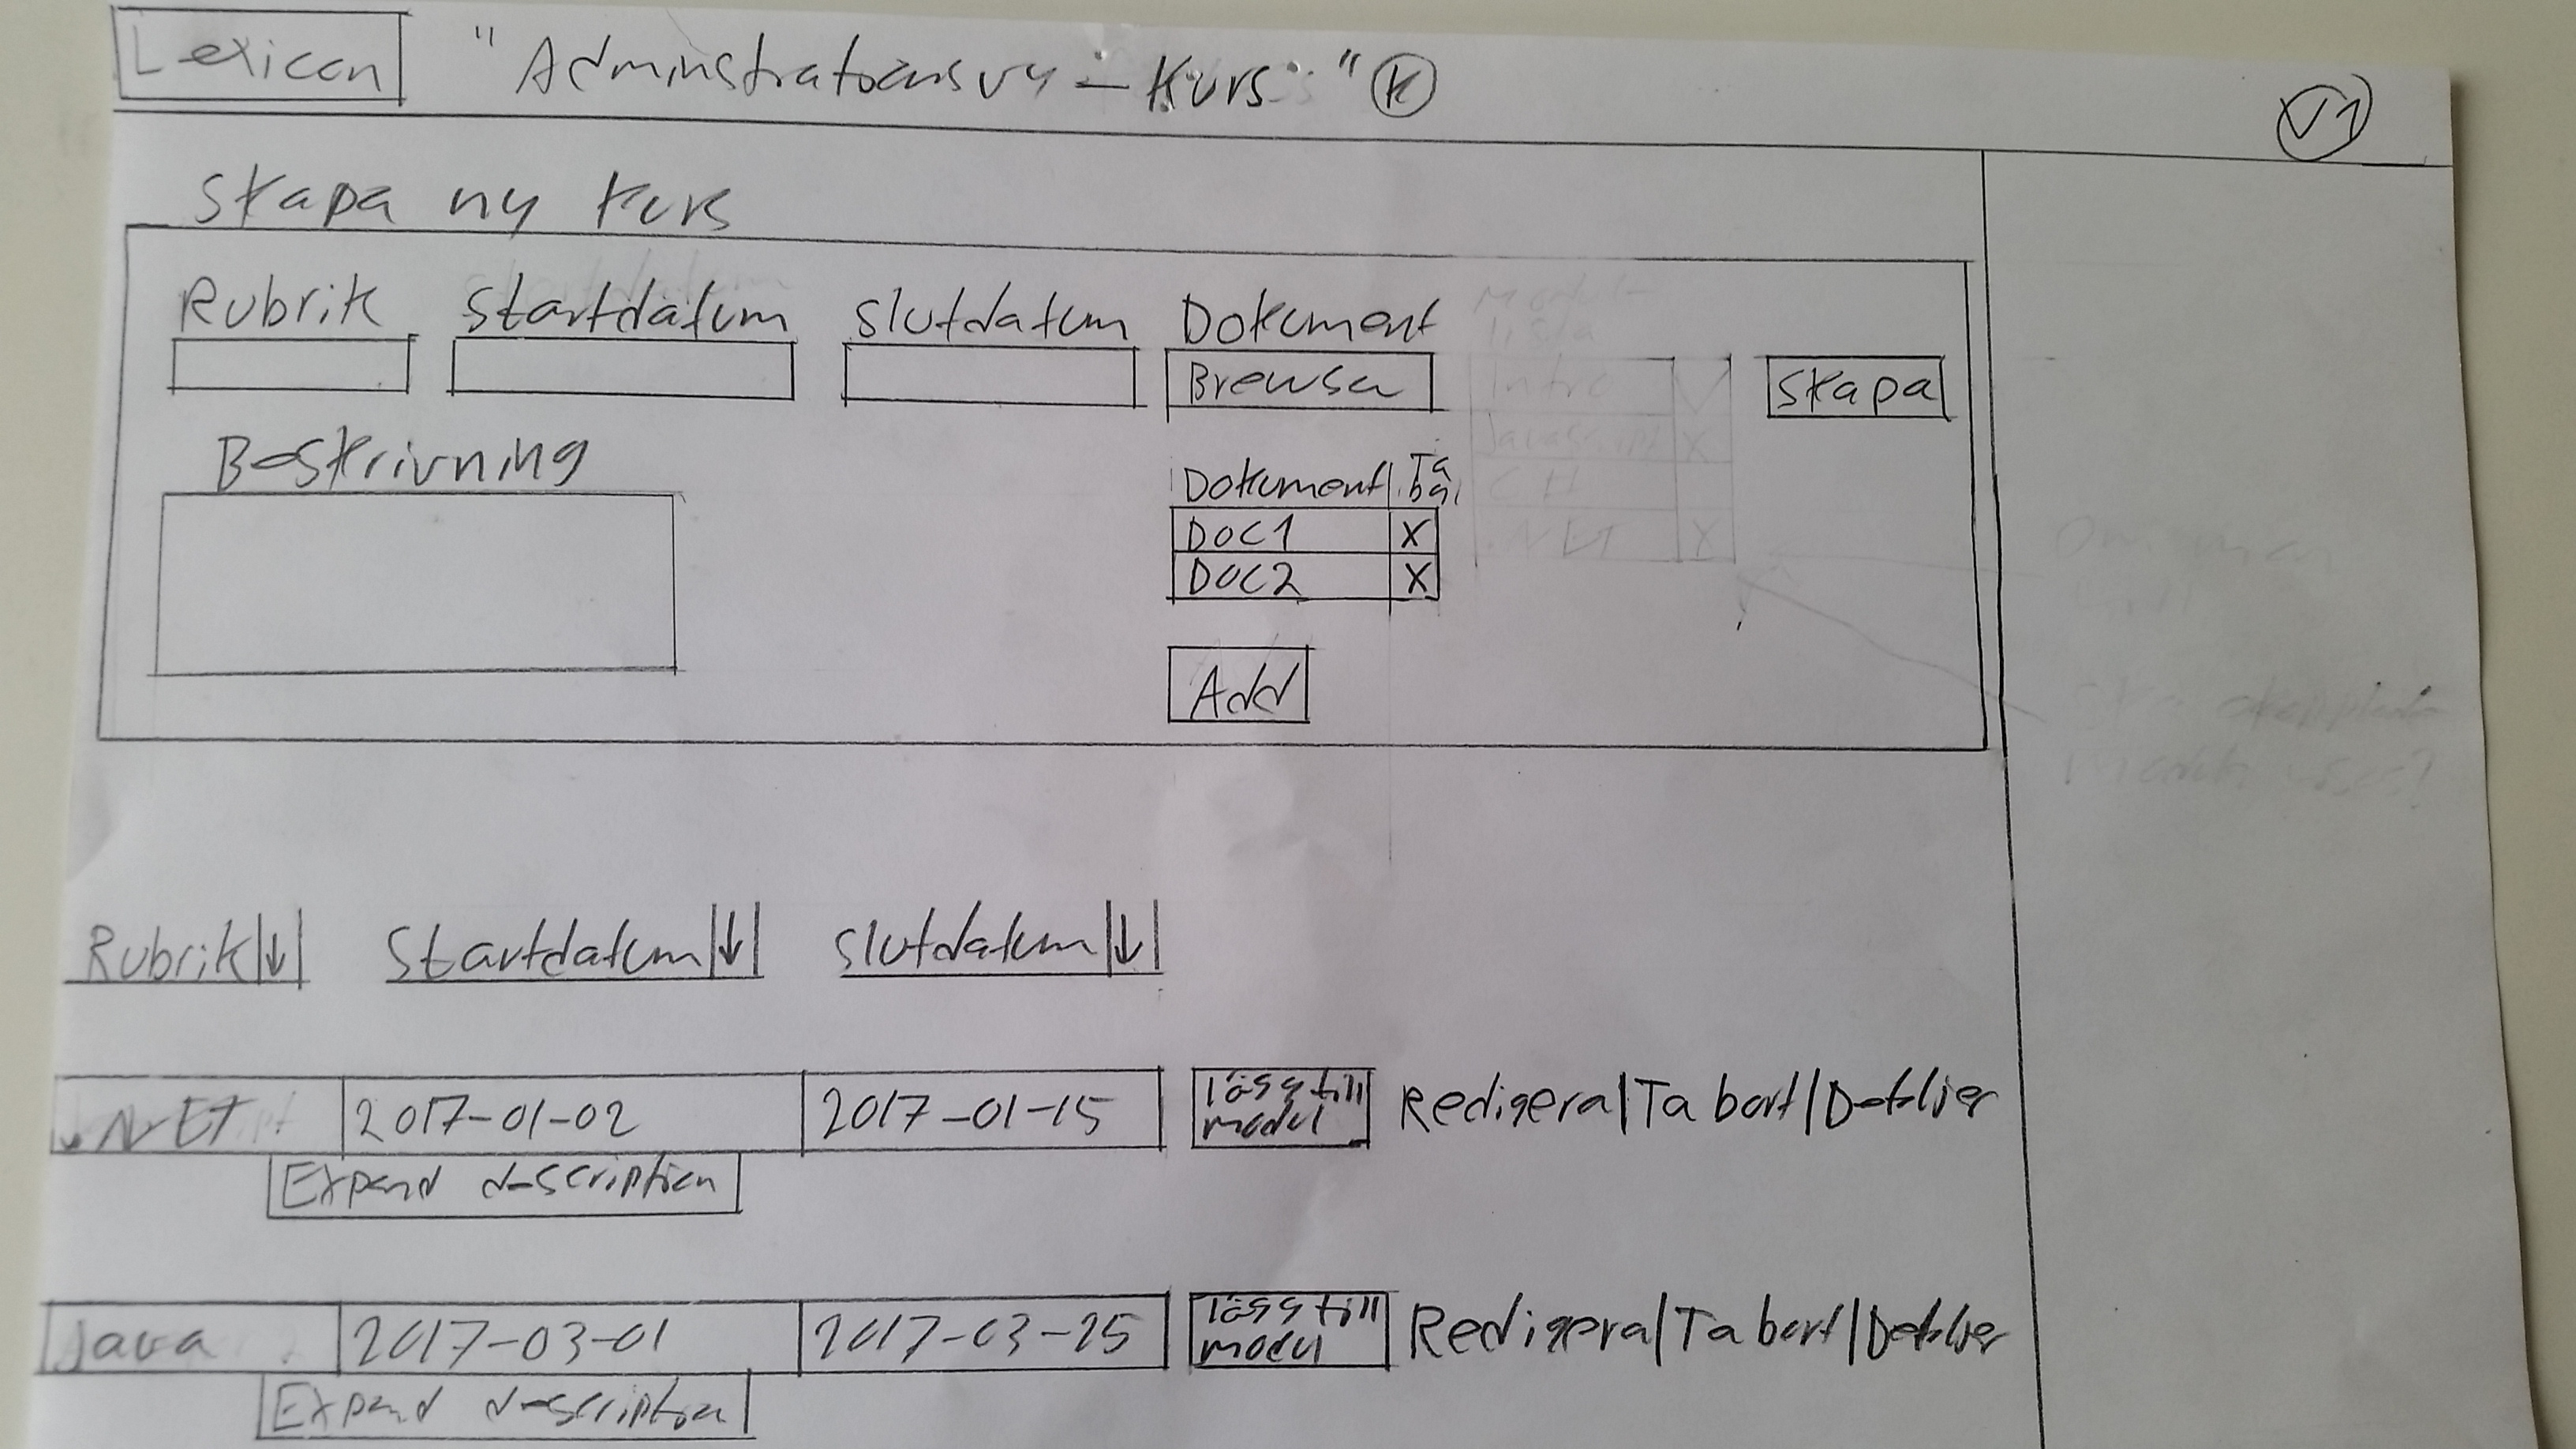 Lexicon "Adminstrationsvy – Kurs" K
V1
Skapa ny kurs
Rubrik Startdatum Slutdatum Dokument
Modul-
lista
Browsa
Skapa
Intro
Javascript X
Beskrivning
Dokument Ta
bort
C#
DOC1 X
.NET X
DOC2 X
Om man
vill
Add
Rubrik ↓ Startdatum ↓ Slutdatum ↓
.NET 2017-01-02 2017-01-15 Lägg till
modul
Redigera | Ta bort | Detaljer
Expand description
Java 2017-03-01 2017-03-25 Lägg till
modul
Redigera | Ta bort | Detaljer
Expand description